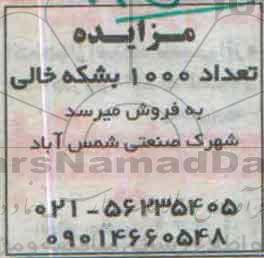 مزایده
تعداد ۱۰۰۰ بشکه خالی
به فروش میرسد
شهرک صنعتی شمس آباد
arsNamadDa
۰۲۱-۵۶۲۳۵۴۰۵
۰۹۰۱۴۶۶۰۵۴۸